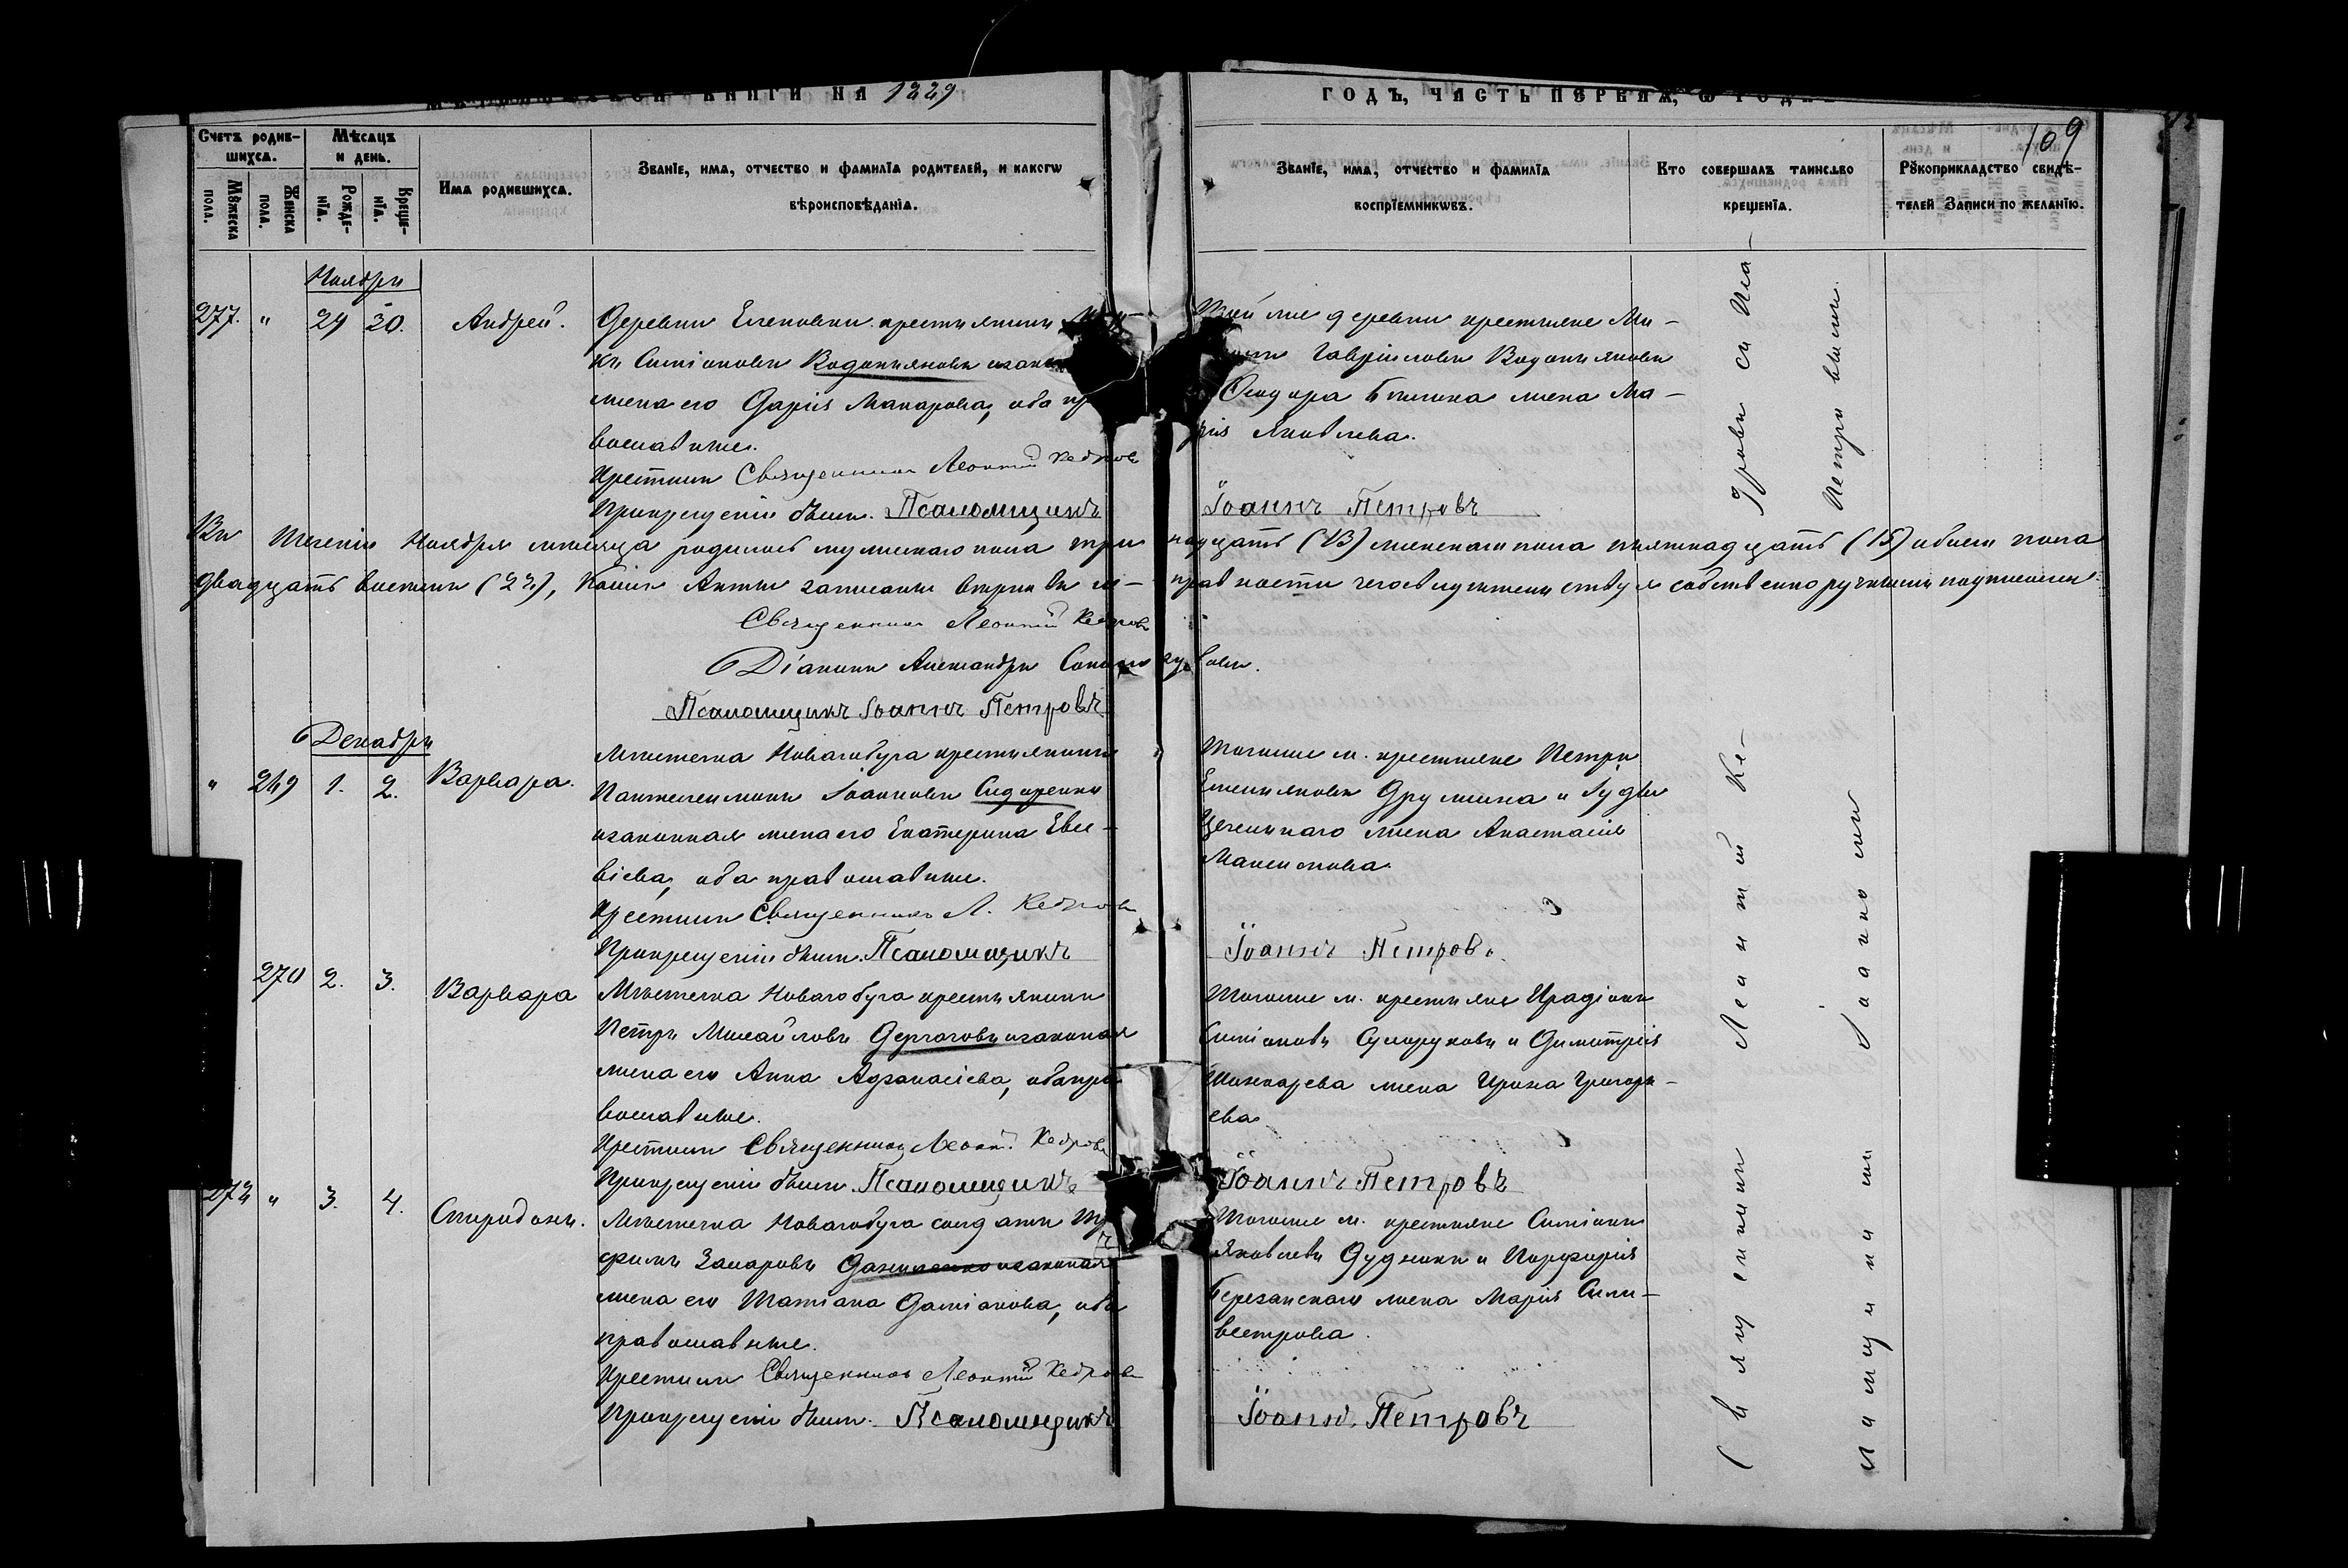 КНИГИ НА 1889
ГОДЪ, ЧАСТЬ ПЕРВАЯ, Ѡ
109
Счетъ родив-
шихся.
Мѣсяцъ
и день.
Мѹжеска
пола.
Женска
пола.
Рожде-
нїя.
Креще-
нїя.
Имя родившихся.
Званїе, имя, отчество и фамилїя родителей, и какогѡ
вѣроисповѣданїя.
Званїе, имя, отчество и фамилїя
воспрїемникѡвъ.
Кто совершалъ таинство
крещенїя.
Рѹкоприкладство свидѣ-
телей записи по желанїю.
Ноябрь
277. " 29 30. Андрей.
Деревни Еленовки крестьянинъ
Симіоновъ Водопьяновъ изакон
жена его Дарія Макарова, оба пр
вославные.
Крестилъ Священникъ Леонтій Кедровъ
При крещеніи былъ. Псаломщикъ
Той же деревни крестьяне Ми-
Гавріиловъ Водопьяновъ
Ѳеодора жена Ма-
рія Яковлева.
Іоаннъ Петровъ
Въ теченіи Ноября мѣсяца родилось мужескаго пола три надцать (13) женскаго пола пятнадцать (15) обоего пола
двадцать восемь (28), какія Акты записаны вѣрно въ и- правности чего свидѣтельствуемъ собственноручнымъ подписомъ
Священникъ Леонтій Кедровъ
Діаконъ Александръ
Псаломщикъ Іоаннъ Петровъ
Декабрь
" 269 1. 2. Варвара.
Мѣстечка Новагобуга крестьянинъ
Пантелеимонъ Іоанновъ Сидоренко
изаконная жена его Екатерина Евсе-
віева, оба православные.
Крестилъ Священникъ Л. Кедровъ
При крещеніи былъ. Псаломщикъ
Тогоже м. крестьяне Петръ
Емельяновъ Дружина и Іуды
жена Анастасія
Максимова
Іоаннъ Петровъ.
270 2. 3. Варвара
Мѣстечка Новагобуга крестьянинъ
Петръ Михайловъ Дергачовъ изаконная
жена его Анна Афанасіева, оба пра
вославные.
Крестилъ Священникъ Леонт. Кедровъ
При крещеніи былъ. Псаломщикъ
Тогоже м. крестьяне Иродіонъ
Симіоновъ Сукоруковъ и Димитрія
Шинкарева жена Ирина Григорь-
ева
Іоаннъ Петровъ
" 3. 4. Спиридонъ.
Мѣстечка Новагобуга солдатъ
фимъ Захаровъ Даниленко изаконная
жена его Татіана Даміанова, оба
православные.
Крестилъ Священникъ Леонтій Кедровъ
При крещеніи былъ. Псаломщикъ
Тогоже м. крестьяне Симіонъ
Яковлевъ Дудникъ и Порфирія
Березанскаго жена Марія Сили-
вестрова.
Іоаннъ Петровъ
Священникъ Леонтій Ке-
дровъ съ Пса-
ломщикомъ Іоанномъ
Петровымъ.